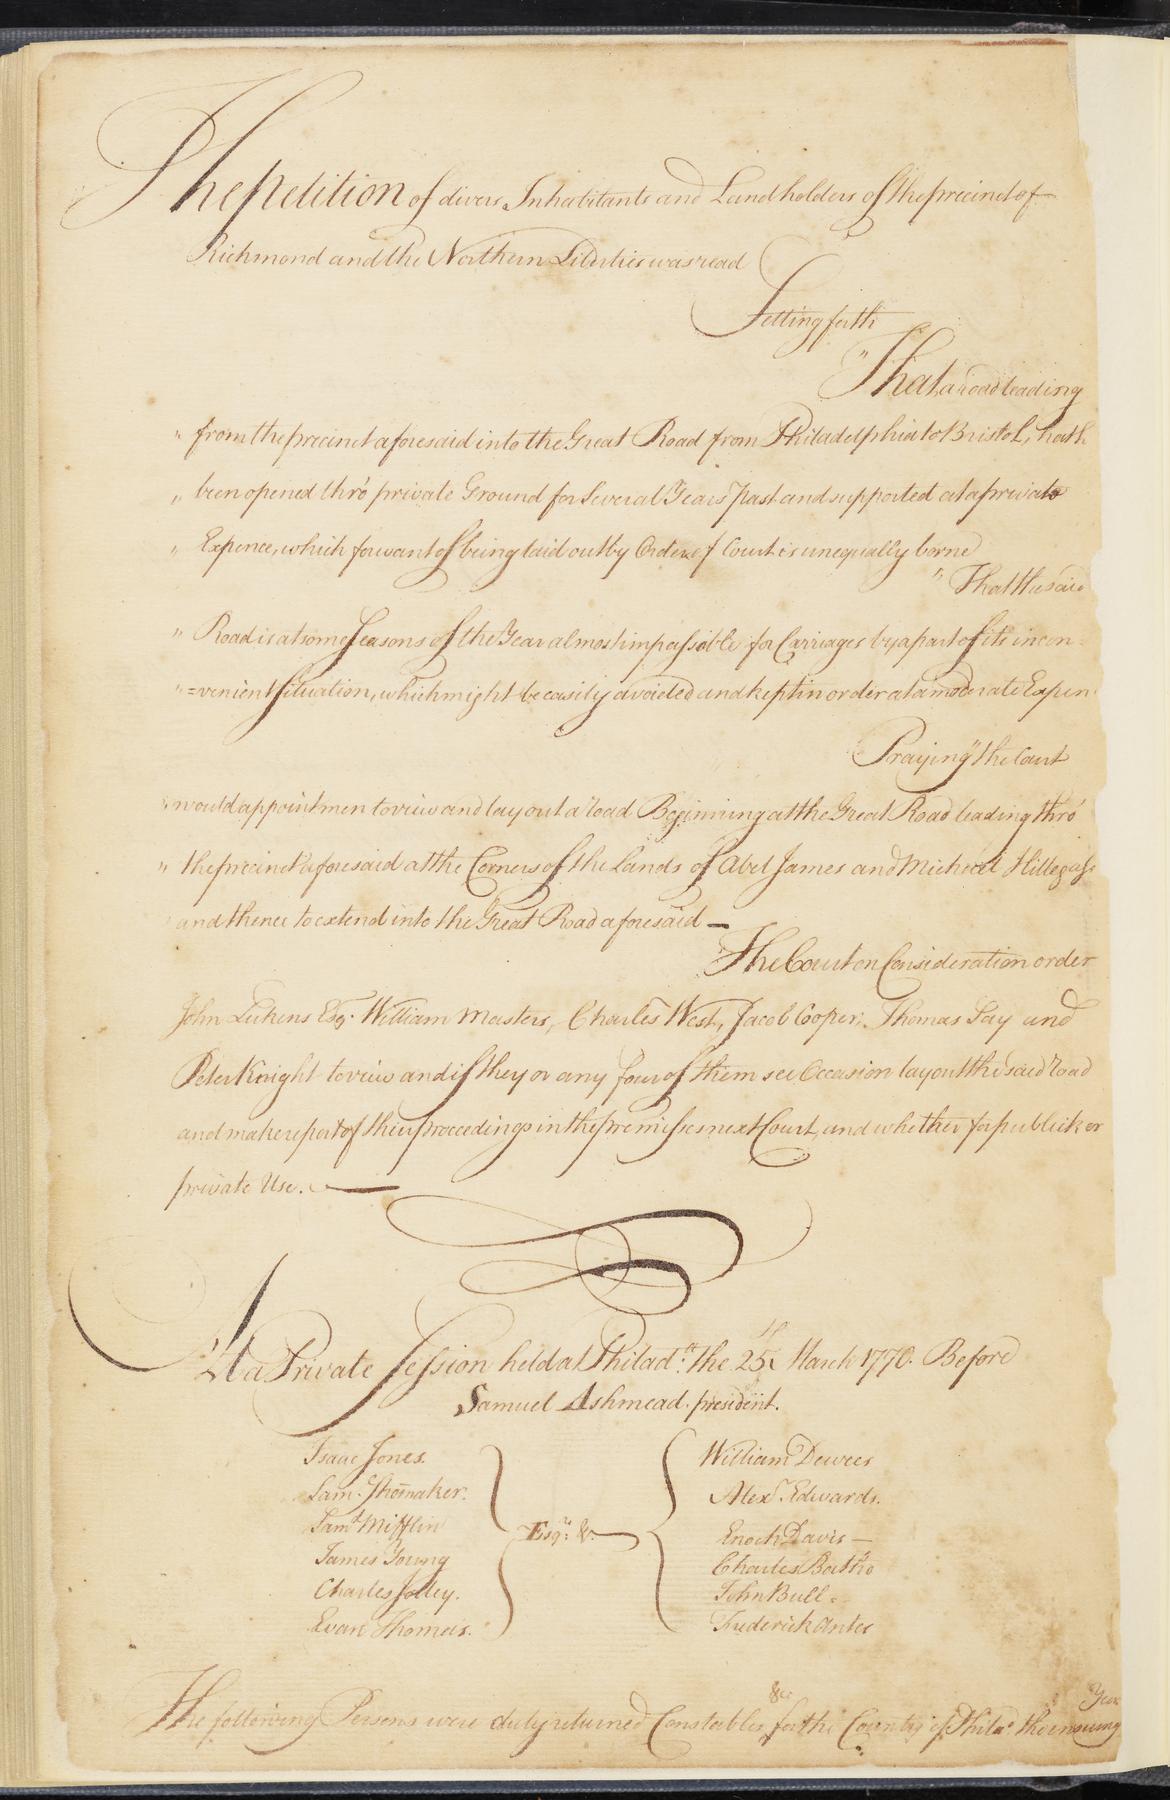 The petition of divers Inhabitants and Landholders of the precinct of
Richmond and the Northern Liberties was read
Setting forth
" That a road leading
" from the precinct aforesaid into the Great Road from Philadelphia to Bristol, hath
" been opened thro' private Ground for Several Years past and supported at a private
" Expence, which for want of being laid out by Order of Court is unequally borne
" That the said
" Road is at some Seasons of the Year almost impassible for Carriages by a part of its incon=
" =venient Situation, which might be easily avoided and kept in order at a moderate Expen
Praying "the Court
" would appoint men to view and lay out a road Beginning at the Great Road leading thro'
" the precinct aforesaid at the Corners of the Lands of Abel James and Micheal Hillegass
and thence to extend into the Great Road aforesaid —
The Court on Consideration order
John Lukens Esqr. William Masters, Charles West, Jacob Cooper, Thomas Say and
Peter Knight to view and if they or any four of them see Occasion lay out the said road
and make report of their proceedings in the premisses next Court, and whether for publick or
private Use. —
At a Private Session held at Philada. the 25th March 1770. Before
Samuel Ashmead. president.
Isaac Jones.
Saml. Shomaker.
Saml. Mifflin
James Young
Charles Jolley.
Evan Thomas.
Esqrs. &c.
William Dewees
Alexr. Edwards.
Enoch Davis —
Charles Batho
John Bull.
Frederick Antes
The following Persons were duly returned Constables &ca for the County of Philada. the ensuing Year